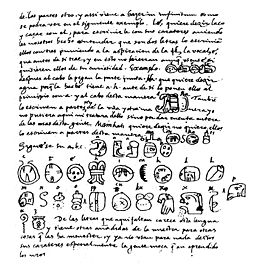 de las partes otro, y assi viene a hazer in infinitum como
se podra ver en el siguiente exemplo. Lé, quiere dezir laço
y caçar con el, para escrivirle con sus carateres aviendo
les nosotros hecho entender que son dos letras lo escrivian
ellos con tres puniendo a la aspiracion de la l, la vocal e,
que antes de si trae, y en esto no hierran aunque
quisieren ellos de su curiosidad. Exemplo.
despues al cabo le pegan la parte junta. Ha que quiere dezir
agua porq la hache tiene a, h, ante de si lo ponen ellos al
principio con a y al cabo desta manera
lo escriven a partes de la una y otra ma
no pusiera aqui ni tratara dello sino por dar cuenta entera
de las cosas desta gente. Mainkati quiere dezir no quiero ellos
lo escriven a partes desta manera
Siguese su a.b.c.
De las letras que aqui faltan carece esta lengua
y tiene otras añadidas de la nuestra para otras
cosas q las ha menester, y ya no usan para nada destos
sus carateres especialmente la gente moça q an aprendido
los nros